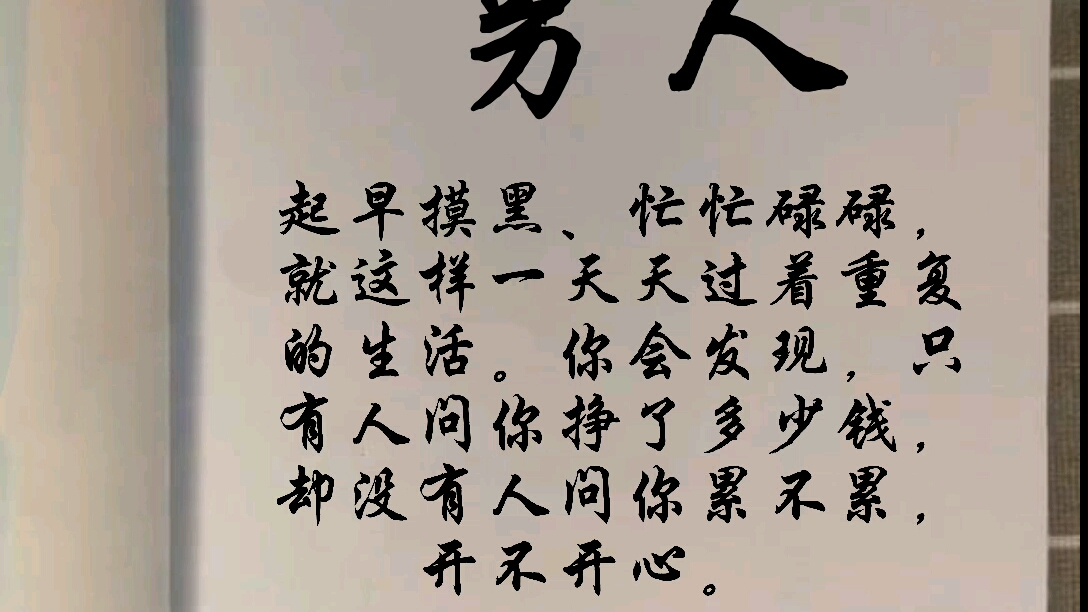 男人
起早摸黑、忙忙碌碌，
就这样一天天过着重复
的生活。你会发现，只
有人问你挣了多少钱，
却没有人问你累不累，
开不开心。